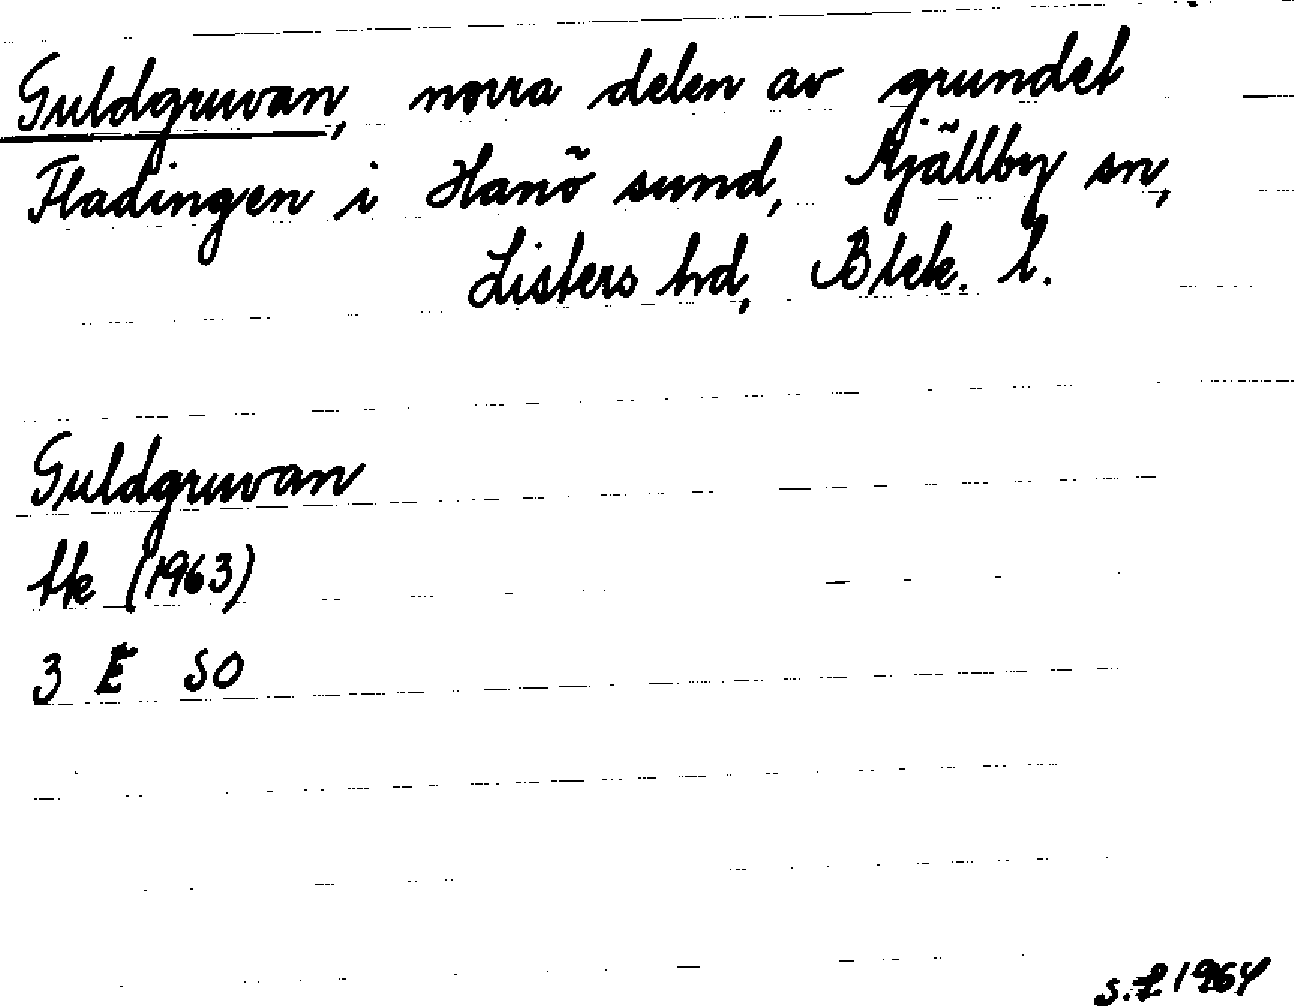 Guldgruvan, norra delen av grundet
Fladingen i Hanö sund, Mjällby sn,
Listers hd, Blek. l.
Guldgruvan
tk (1963)
3 E SO
S.L 1964